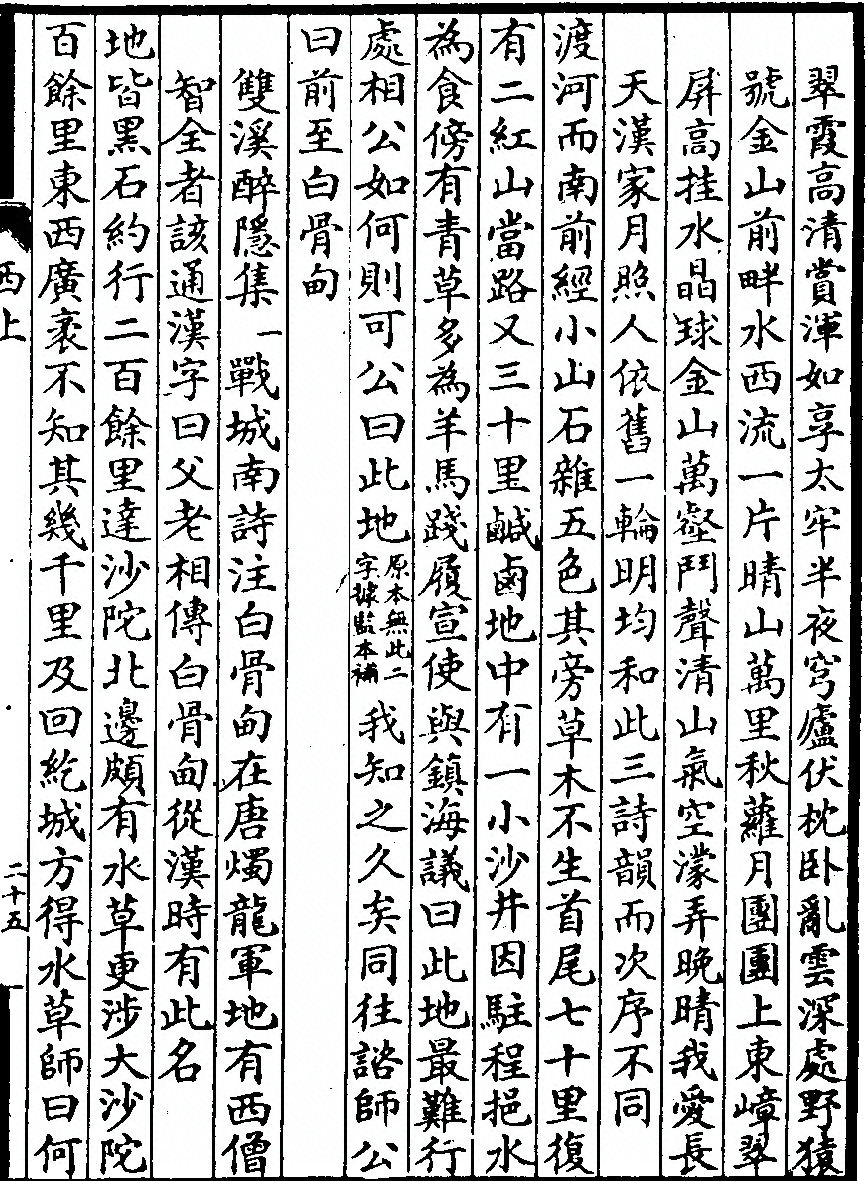 翠霞高清賞渾如享太牢半夜穹廬伏枕卧亂雲深處野猿
號金山前畔水西流一片晴山萬里秋蘿月團團上東嶂翠
屏高挂水晶球金山萬壑鬥聲清山氣空濛弄晚晴我愛長
天漢家月照人依舊一輪明均和此三詩韻而次序不同
渡河而南前經小山石雜五色其旁草木不生首尾七十里復
有二紅山當路又三十里鹹鹵地中有一小沙井因駐程挹水
為食傍有青草多為羊馬踐履宣使與鎮海議曰此地最難行
處相公如何則可公曰此地原本無此二字據監本補我知之久矣同往諮師公
曰前至白骨甸
雙溪醉隱集一戰城南詩注白骨甸在唐燭龍軍地有西僧
智全者該通漢字曰父老相傳白骨甸從漢時有此名
地皆黑石約行二百餘里達沙陀北邊頗有水草更涉大沙陀
百餘里東西廣袤不知其幾千里及回紇城方得水草師曰何
西上
二十五